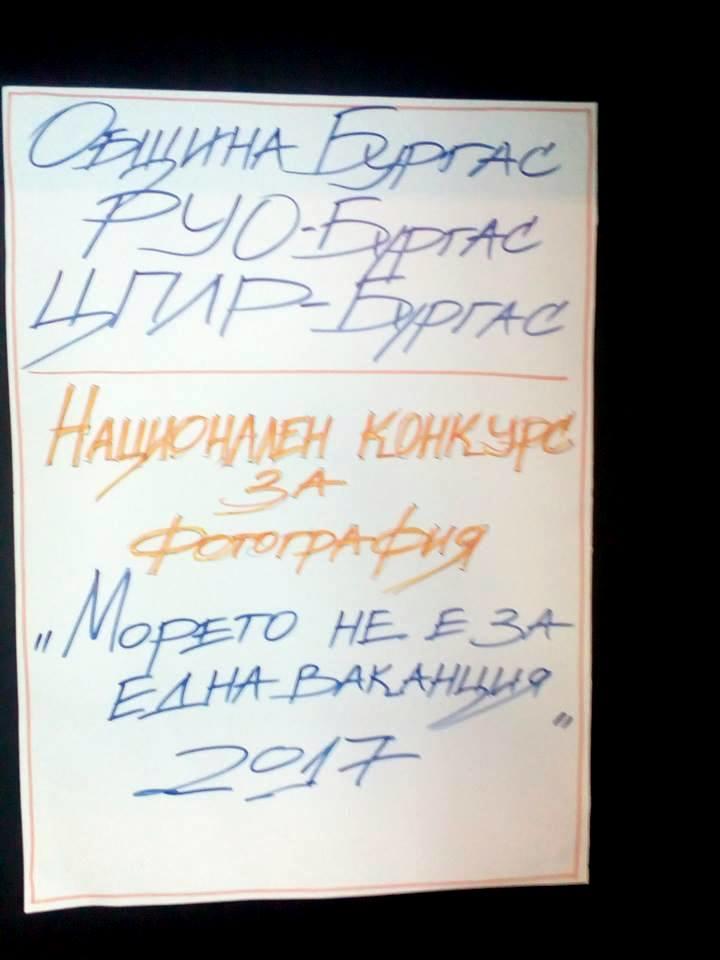 Община Бургас
РУО-Бургас
ЦПЛР-Бургас
Национален конкурс
за
фотография
„Морето не е за
една ваканция"
2017